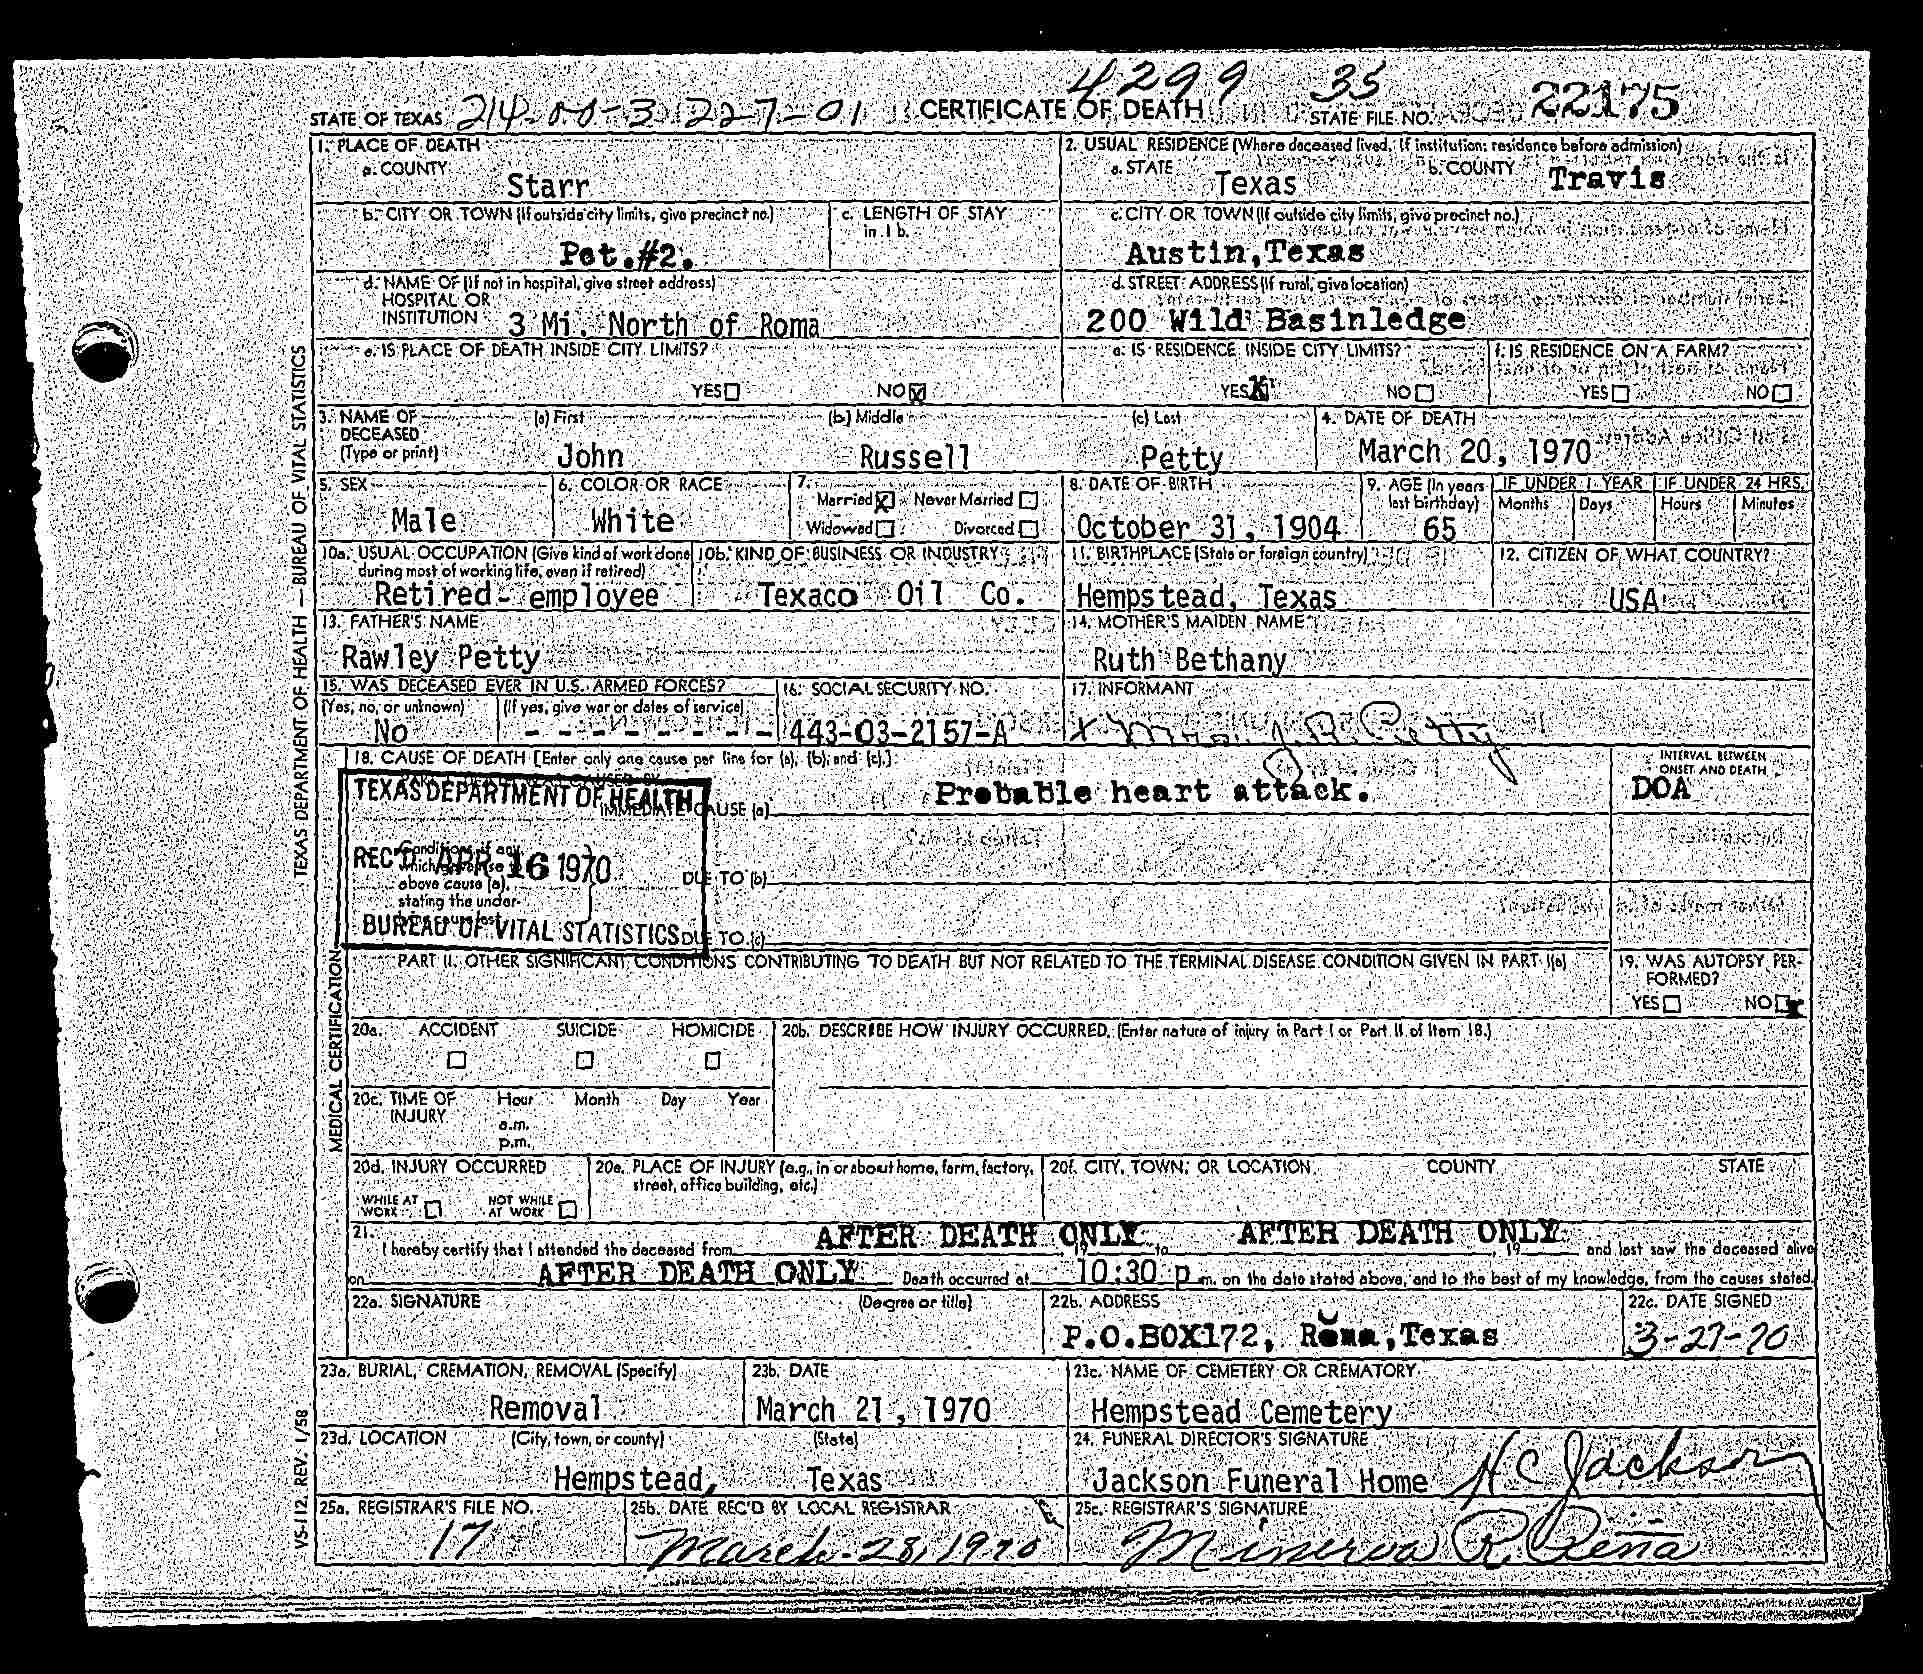 4299 35
STATE OF TEXAS 214-00-3 1227-01 CERTIFICATE OF DEATH STATE FILE NO. 22175
1. PLACE OF DEATH
a. COUNTY
Starr
2. USUAL RESIDENCE (Where deceased lived. If institution: residence before admission)
a. STATE Texas b. COUNTY Travis
b. CITY OR TOWN (If outside city limits, give precinct no.)
Pct.#2.
c. LENGTH OF STAY
in 1 b.
c. CITY OR TOWN (If outside city limits, give precinct no.)
Austin,Texas
d. NAME OF (If not in hospital, give street address)
HOSPITAL OR
INSTITUTION 3 Mi. North of Roma
d. STREET ADDRESS (If rural, give location)
200 Wild Basinledge
e. IS PLACE OF DEATH INSIDE CITY LIMITS?
YES NO X
e. IS RESIDENCE INSIDE CITY LIMITS?
YES X NO
f. IS RESIDENCE ON A FARM?
YES NO
3. NAME OF DECEASED (Type or print)
(a) First (b) Middle (c) Last
John Russell Petty
4. DATE OF DEATH
March 20, 1970
5. SEX
Male
6. COLOR OR RACE
White
7.
Married X Never Married
Widowed Divorced
8. DATE OF BIRTH
October 31, 1904
9. AGE (In years last birthday)
65
IF UNDER 1 YEAR IF UNDER 24 HRS.
Months Days Hours Minutes
10a. USUAL OCCUPATION (Give kind of work done
during most of working life, even if retired)
Retired- employee
10b. KIND OF BUSINESS OR INDUSTRY
Texaco Oil Co.
11. BIRTHPLACE (State or foreign country)
Hempstead, Texas
12. CITIZEN OF WHAT COUNTRY?
USA
13. FATHER'S NAME
Rawley Petty
14. MOTHER'S MAIDEN NAME
Ruth Bethany
15. WAS DECEASED EVER IN U.S. ARMED FORCES?
(Yes, no, or unknown) (If yes, give war or dates of service)
No - - - - - - - - -
16. SOCIAL SECURITY NO.
443-03-2157-A
17. INFORMANT
x Mrs. J. R. Petty
18. CAUSE OF DEATH [Enter only one cause per line for (a), (b), and (c).]
INTERVAL BETWEEN
ONSET AND DEATH
IMMEDIATE CAUSE (a) Probable heart attack. DOA
TEXAS DEPARTMENT OF HEALTH
REC'D APR 16 1970
BUREAU OF VITAL STATISTICS
Conditions, if any,
which gave rise to
above cause (a),
stating the under-
lying cause last.
DUE TO (b)
DUE TO (c)
PART II. OTHER SIGNIFICANT CONDITIONS CONTRIBUTING TO DEATH BUT NOT RELATED TO THE TERMINAL DISEASE CONDITION GIVEN IN PART I(a)
19. WAS AUTOPSY PER-
FORMED?
YES NO X
20a. ACCIDENT SUICIDE HOMICIDE
20b. DESCRIBE HOW INJURY OCCURRED. (Enter nature of injury in Part I or Part II of Item 18.)
20c. TIME OF INJURY Hour Month Day Year
a.m.
p.m.
20d. INJURY OCCURRED
WHILE AT WORK NOT WHILE AT WORK
20e. PLACE OF INJURY (e.g., in or about home, farm, factory,
street, office building, etc.)
20f. CITY, TOWN, OR LOCATION COUNTY STATE
21.
I hereby certify that I attended the deceased from AFTER DEATH ONLY, 19 to AFTER DEATH ONLY, 19 and last saw the deceased alive
on AFTER DEATH ONLY Death occurred at 10:30 p m. on the date stated above, and to the best of my knowledge, from the causes stated.
22a. SIGNATURE (Degree or title)
22b. ADDRESS
P.O.BOX172, Roma,Texas
22c. DATE SIGNED
3-27-70
23a. BURIAL, CREMATION, REMOVAL (Specify)
Removal
23b. DATE
March 21, 1970
23c. NAME OF CEMETERY OR CREMATORY
Hempstead Cemetery
23d. LOCATION (City, town, or county) (State)
Hempstead, Texas
24. FUNERAL DIRECTOR'S SIGNATURE
Jackson Funeral Home H C Jackson
25a. REGISTRAR'S FILE NO.
17
25b. DATE REC'D BY LOCAL REGISTRAR
March-28, 1970
25c. REGISTRAR'S SIGNATURE
Minerva R. Peña
TEXAS DEPARTMENT OF HEALTH — BUREAU OF VITAL STATISTICS
MEDICAL CERTIFICATION
VS-112 REV. 1/58